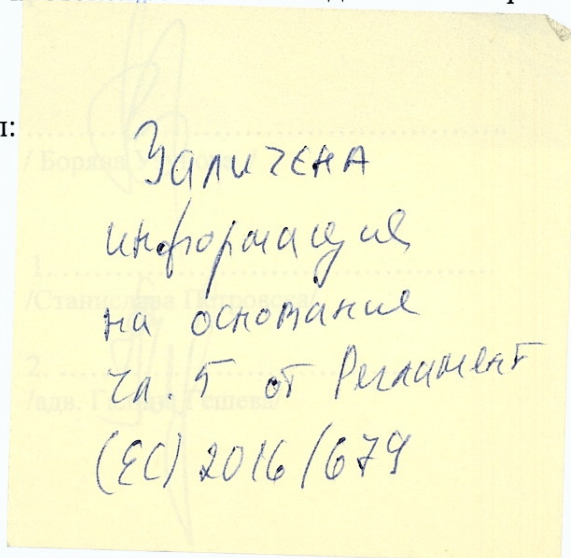 Заличена
информация
на основание
чл. 5 от Регламент
(ЕС) 2016/679